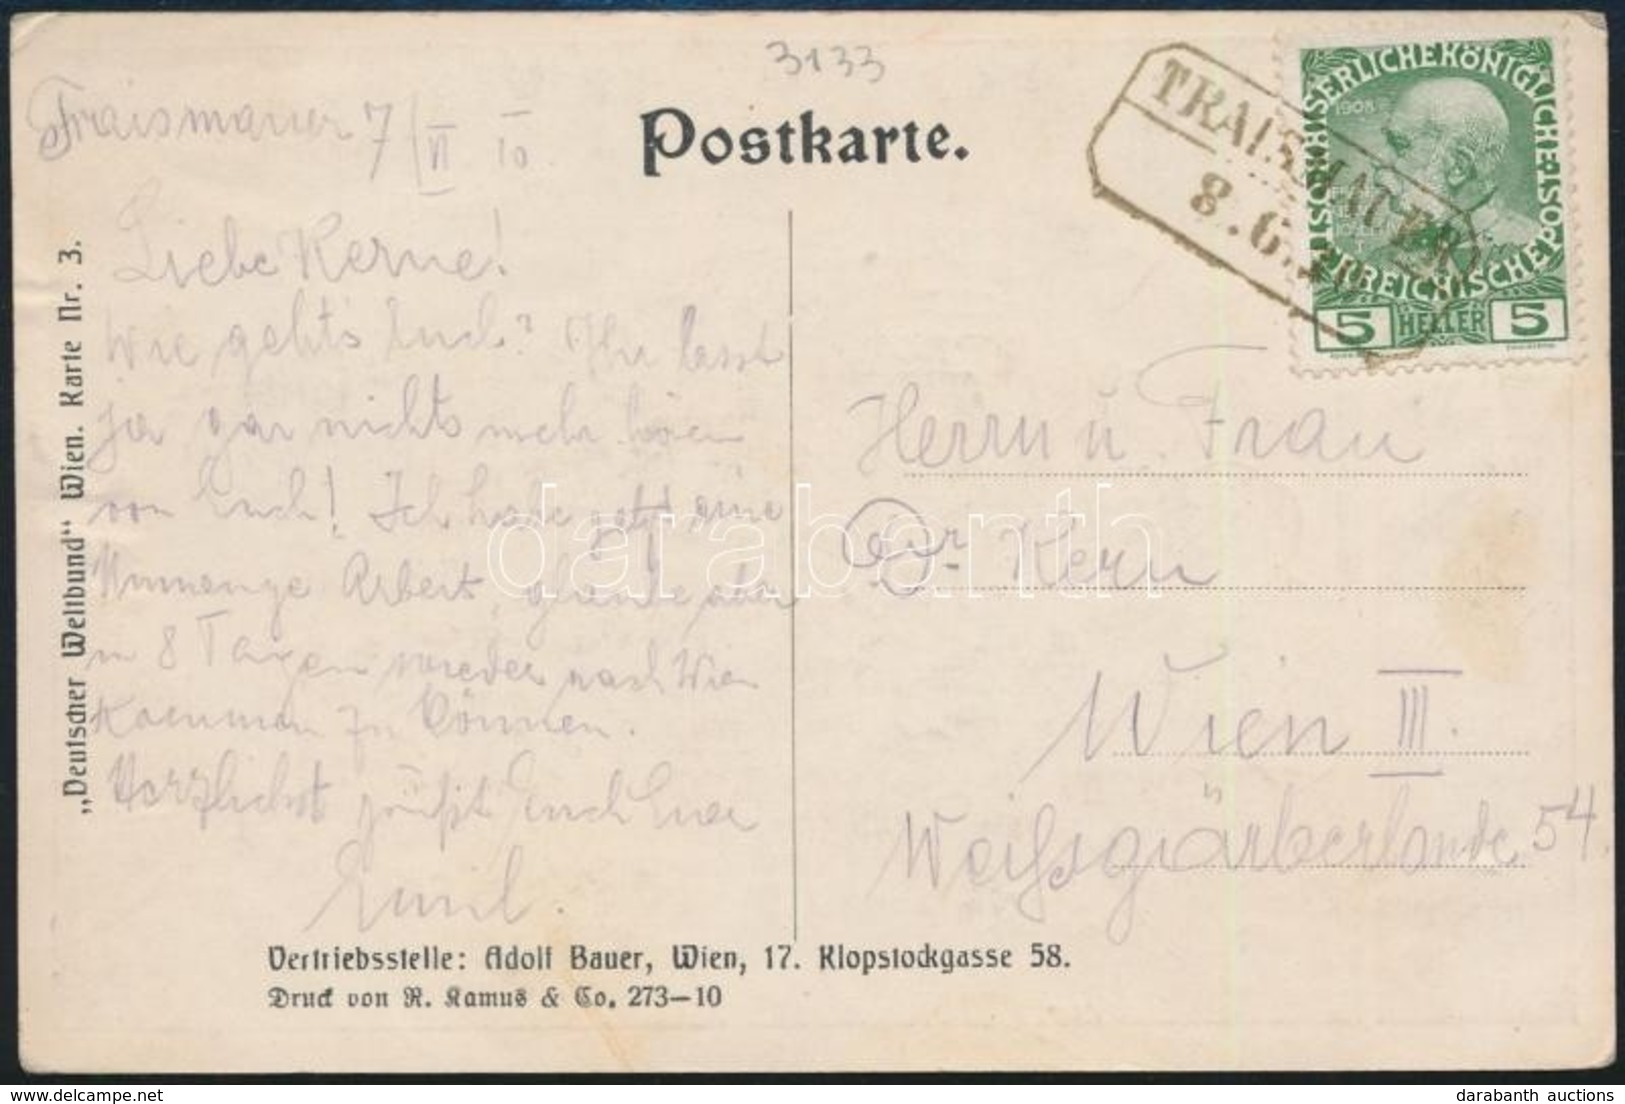 3133
Postkarte.
Traismauer 7/VI 10.
Liebe Kerne!
Wie geht's Euch? Ihr lasst
ja gar nichts mehr hören
von Euch! Ich habe jetzt eine
Unmenge Arbeit, glaube aber
in 8 Tagen wieder nach Wien
kommen zu können.
Herzlichst grüßt Euch Euer
Emil.
"Deutscher Weltbund" Wien. Karte Nr. 3.
TRAISMAUER
8.6.10
ÖSTERREICHISCHE POST
KAISERLICHE KÖNIGLICHE
1908
5 HELLER 5
Herrn u. Frau
Dr Kern
Wien III.
Weißgärberlände 54.
Vertriebsstelle: Adolf Bauer, Wien, 17. Klopstockgasse 58.
Druck von R. Kamus & Co. 273—10
darabanth
darabanth auctions